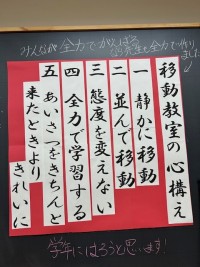 みんなが全力でがんばる
先生も全力で
移動教室の心構え
一 静かに移動
二 並んで移動
三 態度を変えない
四 全力で学習する
五 あいさつをきちんと
来たときよりきれいに
学年にはろうと思います!